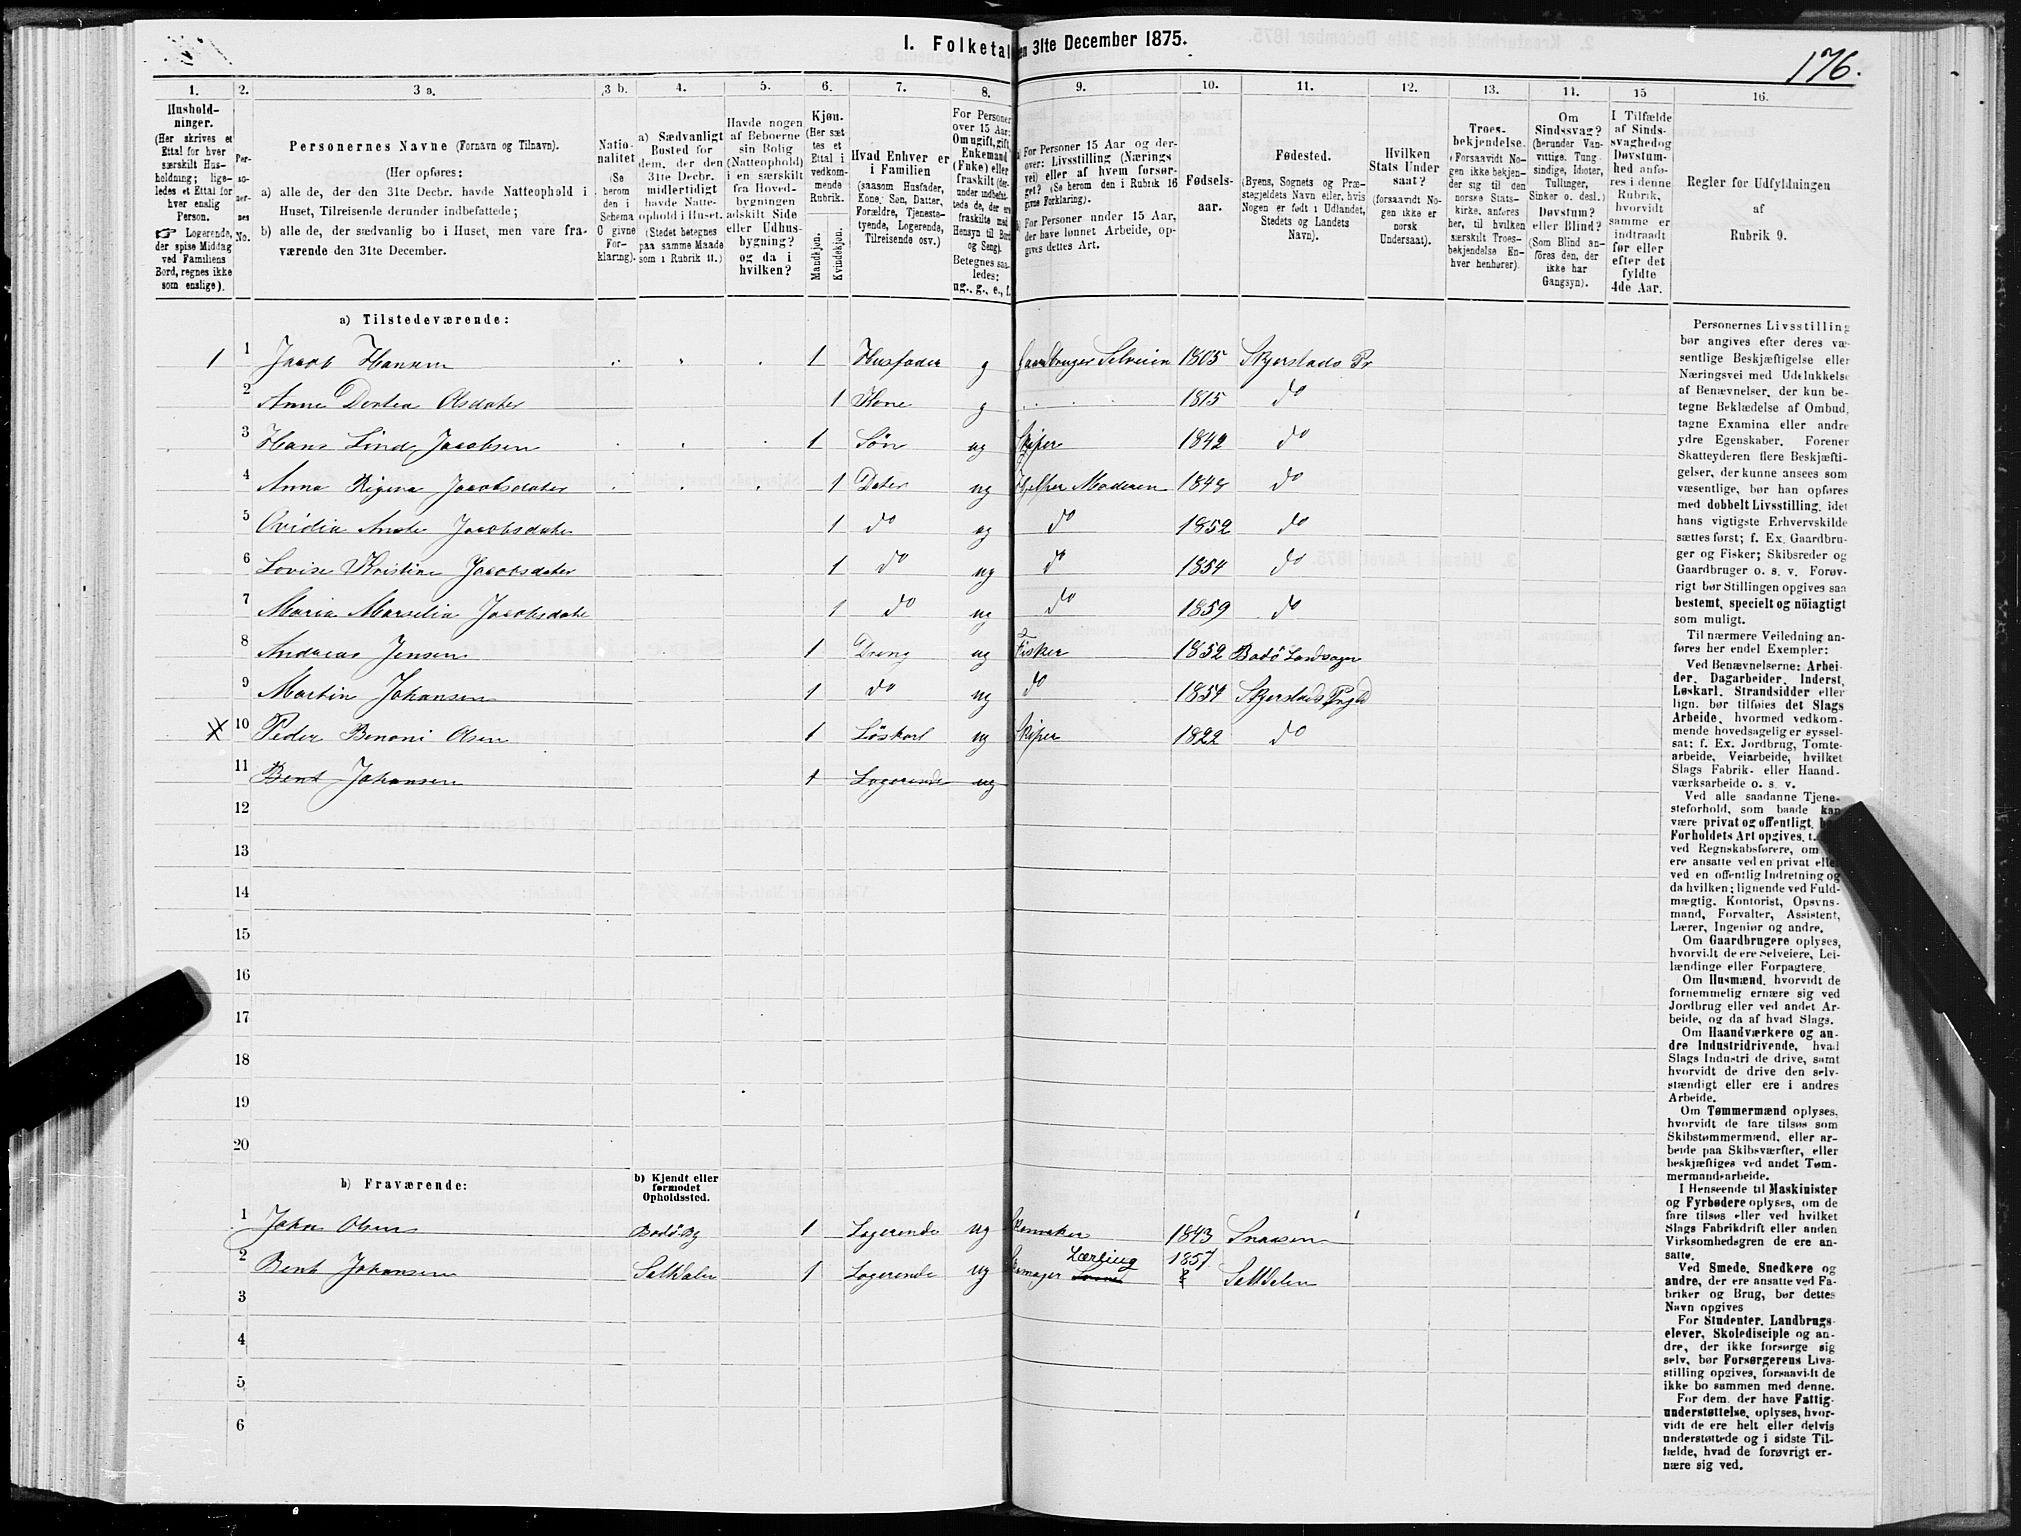 I. Folketal
en 31te December 1875.
176.
1. 2. 3 a. 3 b. 4. 5. 6. 7. 8. 9. 10. 11. 12. 13. 14. 15 16.
Hushold-
ninger.
(Her skrives et
Ettal for hver
særskilt Hus-
holdning; lige-
ledes et Ettal for
hver enslig
Person.
☞ Logerende,
der spise Middag
ved Familiens
Bord, regnes ikke
som enslige).
Per-
soner-
nes
No.
Personernes Navne (Fornavn og Tilnavn).
(Her opføres:
a) alle de, der den 31te Decbr. havde Natteophold i
Huset, Tilreisende derunder indbefattede;
b) alle de, der sædvanlig bo i Huset, men vare fra-
værende den 31te December.
Natio-
nalitet
(Se
herom
den i
Schema
C givne
For-
klaring).
a) Sædvanligt
Bosted for
dem, der den
31te Decbr.
midlertidigt
havde Natte-
ophold i Huset.
(Stedet betegnes
paa samme Maade
som i Rubrik 11.)
Havde nogen
af Beboerne
sin Bolig
(Natteophold)
i en særskilt
fra Hoved-
bygningen
adskilt Side
eller Udhus-
bygning?
og da i
hvilken?
Kjøn.
(Her sæt
tes et
Ettal i
vedkom-
mende
Rubrik.
Mandkjøn.
Kvindekjøn.
Hvad Enhver er
i Familien
(saasom Husfader,
Kone, Søn, Datter,
Forældre, Tjeneste-
tyende, Logerende,
Tilreisende osv.)
For Personer
over 15 Aar:
Om ugift, gift,
Enkemand
(Enke) eller
fraskilt (der-
under indbefat-
tede de, der ere
fraskilte med
Hensyn til Bord
og Seng).
Betegnes saa-
ledes:
ug., g., e., f.
For Personer 15 Aar og der-
over: Livsstilling (Nærings
vei) eller af hvem forsør-
get? (Se herom den i Rubrik 16
givne Forklaring).
For Personer under 15 Aar,
der have lønnet Arbeide, op-
gives dettes Art.
Fødsels-
aar.
Fødested.
(Byens, Sognets og Præ-
stegjeldets Navn eller, hvis
Nogen er født i Udlandet,
Stedets og Landets
Navn).
Hvilken
Stats Under
saat?
(forsaavidt No-
gen ikke er
norsk
Undersaat).
Troes-
bekjendelse.
(Forsaavidt No-
gen ikke bekjen-
der sig til den
norske Stats-
kirke, anføres
her, til hvilken
særskilt Troes-
bekjendelse En-
hver henhører).
Om
Sindssvag?
(herunder Van-
vittige, Tung-
sindige, Idioter,
Tullinger,
Sinker o. desl.)
Døvstum?
eller Blind?
(Som Blind an-
føres den, der
ikke har
Gangsyn).
I Tilfælde
af Sinds-
svaghed og
Døvstum-
hed anfø-
res i denne
Rubrik,
hvorvidt
samme er
indtraadt
før eller
efter det
fyldte
4de Aar.
Regler for Udfyldningen
af
Rubrik 9.
a) Tilstedeværende:
1 1 Jacob Hansen 1 Husfader g Gaardbruger Selveien 1805 Skjerstads Pr
2 Anne Dortea Olsdater 1 Kone g 1815 do
3 Hans Lind Jacobsen 1 Søn ug Skiper 1842 do
4 Anna Regina Jacobsdater 1 Dater ug Hjelper Moderen 1848 do
5 Ovidia Jacobsdater 1 do ug do 1852 do
6 Lovise Kristine Jacobsdater 1 do ug do 1854 do
7 Maria Marselia Jacobsdate 1 do ug do 1859 do
8 Andreas Jensen 1 Dreng ug Fisker 1852 Bodö Landsogn
9 Martin Johansen 1 do ug do 1854 Skjerstads Prgd
X 10 Peder Benoni Olsen 1 Löskarl ug Skiper 1822 do
11 Bent Johansen 1 Logerende ug
12
13
14
15
16
17
18
19
20
b) Fraværende:
b) Kjendt eller
formodet
Opholdssted.
1 John Olsen Bodö By 1 Logerende ug Skomaker 1843 Snaasen
2 Bent Johansen Saltdalen 1 Logerende ug Skomager Lærling 1857 Saltdalen
3
4
5
6
Personernes Livsstilling
bør angives efter deres væ-
sentlige Beskjæftigelse eller
Næringsvei med Udelukkelse
af Benævnelser, der kun be-
tegne Beklædelse af Ombud,
tagne Examina eller andre
ydre Egenskaber. Forener
Skatteyderen flere Beskjæfti-
gelser, der kunne ansees som
væsentlige, bør han opføres
med dobbelt Livsstilling, idet
hans vigtigste Erhvervskilde
sættes først; f. Ex. Gaardbru-
ger og Fisker; Skibsreder og
Gaardbruger o. s. v. Forøv-
rigt bør Stillingen opgives saa
bestemt, specielt og nöiagtigt
som muligt.
Til nærmere Veiledning an-
føres her endel Exempler:
Ved Benævnelserne: Arbei-
der, Dagarbeider, Inderst,
Løskarl, Strandsidder eller
lign. bør tilføies det Slags
Arbeide, hvormed vedkom-
mende hovedsagelig er syssel-
sat; f. Ex. Jordbrug, Tomte-
arbeide, Veiarbeide, hvilket
Slags Fabrik- eller Haand-
værksarbeide o. s. v.
Ved alle saadanne Tjene-
steforhold, som baade kan
være privat og offentligt,
Forholdets Art opgives,
ved Regnskabsførere, om
ere ansatte ved en privat eller
ved en offentlig Indretning og
da hvilken; lignende ved Fuld-
mægtig, Kontorist, Opsyns-
mand, Forvalter, Assistent,
Lærer, Ingeniør og andre.
Om Gaardbrugere oplyses,
hvorvidt de ere Selveiere, Lei-
lændinge eller Forpagtere.
Om Husmænd, hvorvidt de
fornemmelig ernære sig ved
Jordbrug eller ved andet Ar-
beide, og da af hvad Slags.
Om Haandværkere og an-
dre Industridrivende, hvad
Slags Industri de drive, samt
hvorvidt de drive den selv-
stændigt eller ere i andres
Arbeide.
Om Tømmermænd oplyses,
hvorvidt de fare tilsøs som
Skibstømmermænd, eller ar-
beide paa Skibsværfter, eller
beskjæftiges ved andet Tøm-
mermandsarbeide.
I Henseende til Maskinister
og Fyrbødere oplyses, om de
fare tilsøs eller ved hvilket
Slags Fabrikdrift eller anden
Virksomhedsgren de ere an-
satte.
Ved Smede, Snedkere og
andre, der ere ansatte ved Fa-
briker og Brug, bør dettes
Navn opgives
For Studenter, Landbrugs-
elever, Skoledisciple og an-
dre, der ikke forsørge sig
selv, bør Forsørgerens Livs-
stilling opgives, forsaavidt de
ikke bo sammen med denne.
For dem, der have Fattig-
understøttelse, oplyses, hvor-
vidt de ere helt eller delvis
understøttede og i sidste Til-
fælde, hvad de forøvrigt er-
nære sig ved.